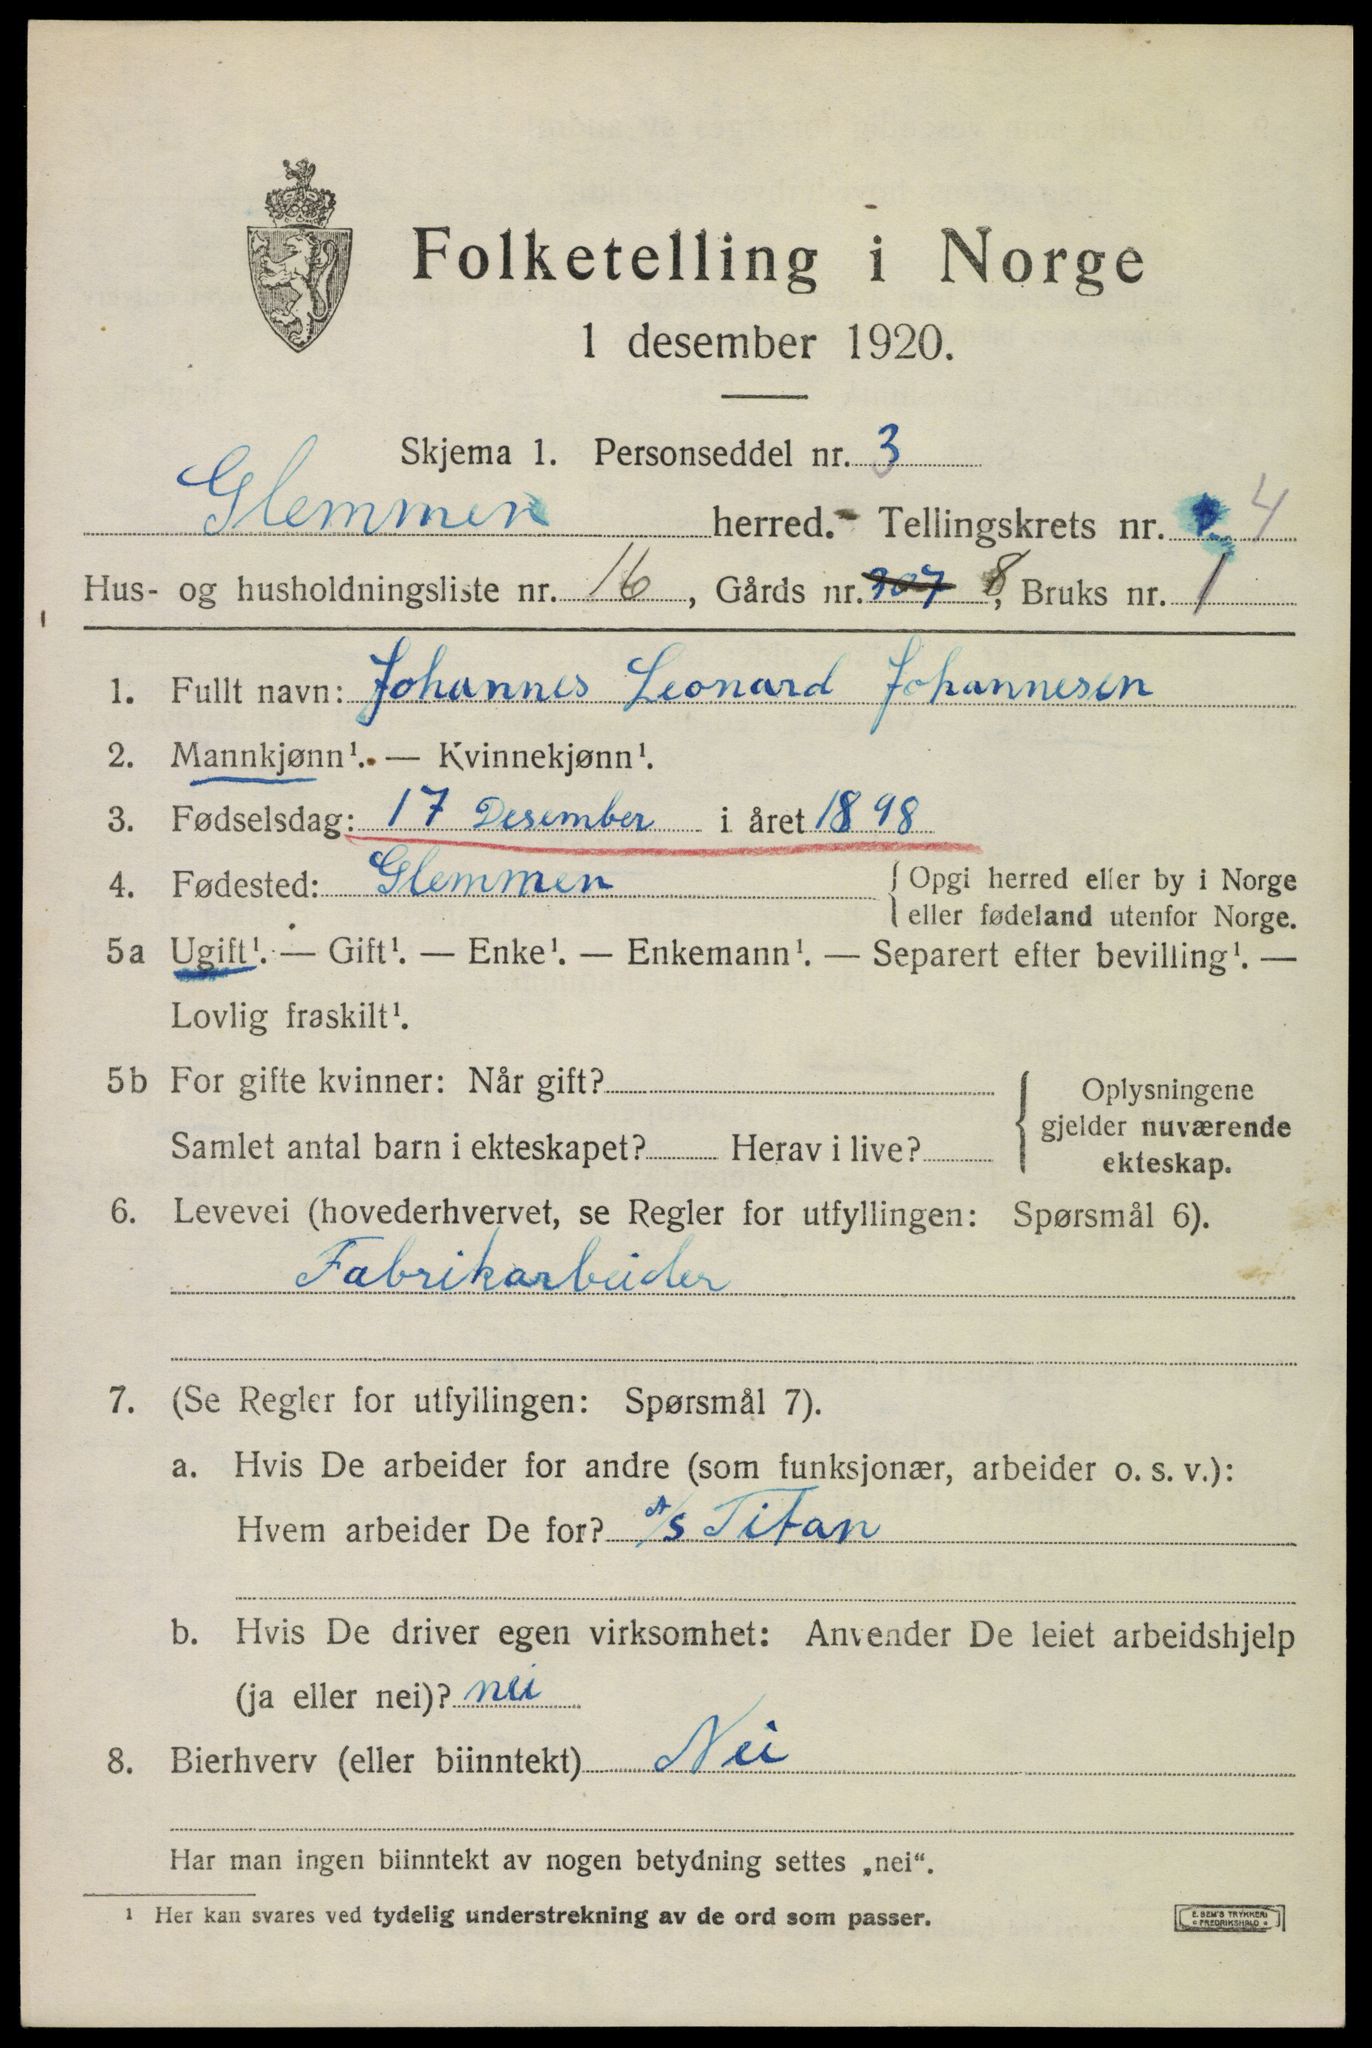 Folketelling i Norge
1 desember 1920.
Skjema 1. Personseddel nr. 3
Glemmen herred. Tellingskrets nr. 4
Hus- og husholdningsliste nr. 16, Gårds nr. 307 8, Bruks nr. 1
1. Fullt navn: Johannes Leonard Johannesen
2. Mannkjønn¹. — Kvinnekjønn¹.
3. Fødselsdag: 17 Desember i året 1898
4. Fødested: Glemmen {Opgi herred eller by i Norge
eller fødeland utenfor Norge.
5a Ugift¹. — Gift¹. — Enke¹. — Enkemann¹. — Separert efter bevilling¹. —
Lovlig fraskilt¹.
5b For gifte kvinner: Når gift? { Oplysningene
gjelder nuværende
Samlet antal barn i ekteskapet? Herav i live?
ekteskap.
6. Levevei (hovederhvervet, se Regler for utfyllingen: Spørsmål 6).
Fabrikarbeider
7. (Se Regler for utfyllingen: Spørsmål 7).
a. Hvis De arbeider for andre (som funksjonær, arbeider o. s. v.):
Hvem arbeider De for? A/S Titan
b. Hvis De driver egen virksomhet: Anvender De leiet arbeidshjelp
(ja eller nei)? nei
8. Bierhverv (eller biinntekt) Nei
Har man ingen biinntekt av nogen betydning settes „nei“.
¹ Her kan svares ved tydelig understrekning av de ord som passer.
E. SEM'S TRYKKERI
FREDRIKSHALD